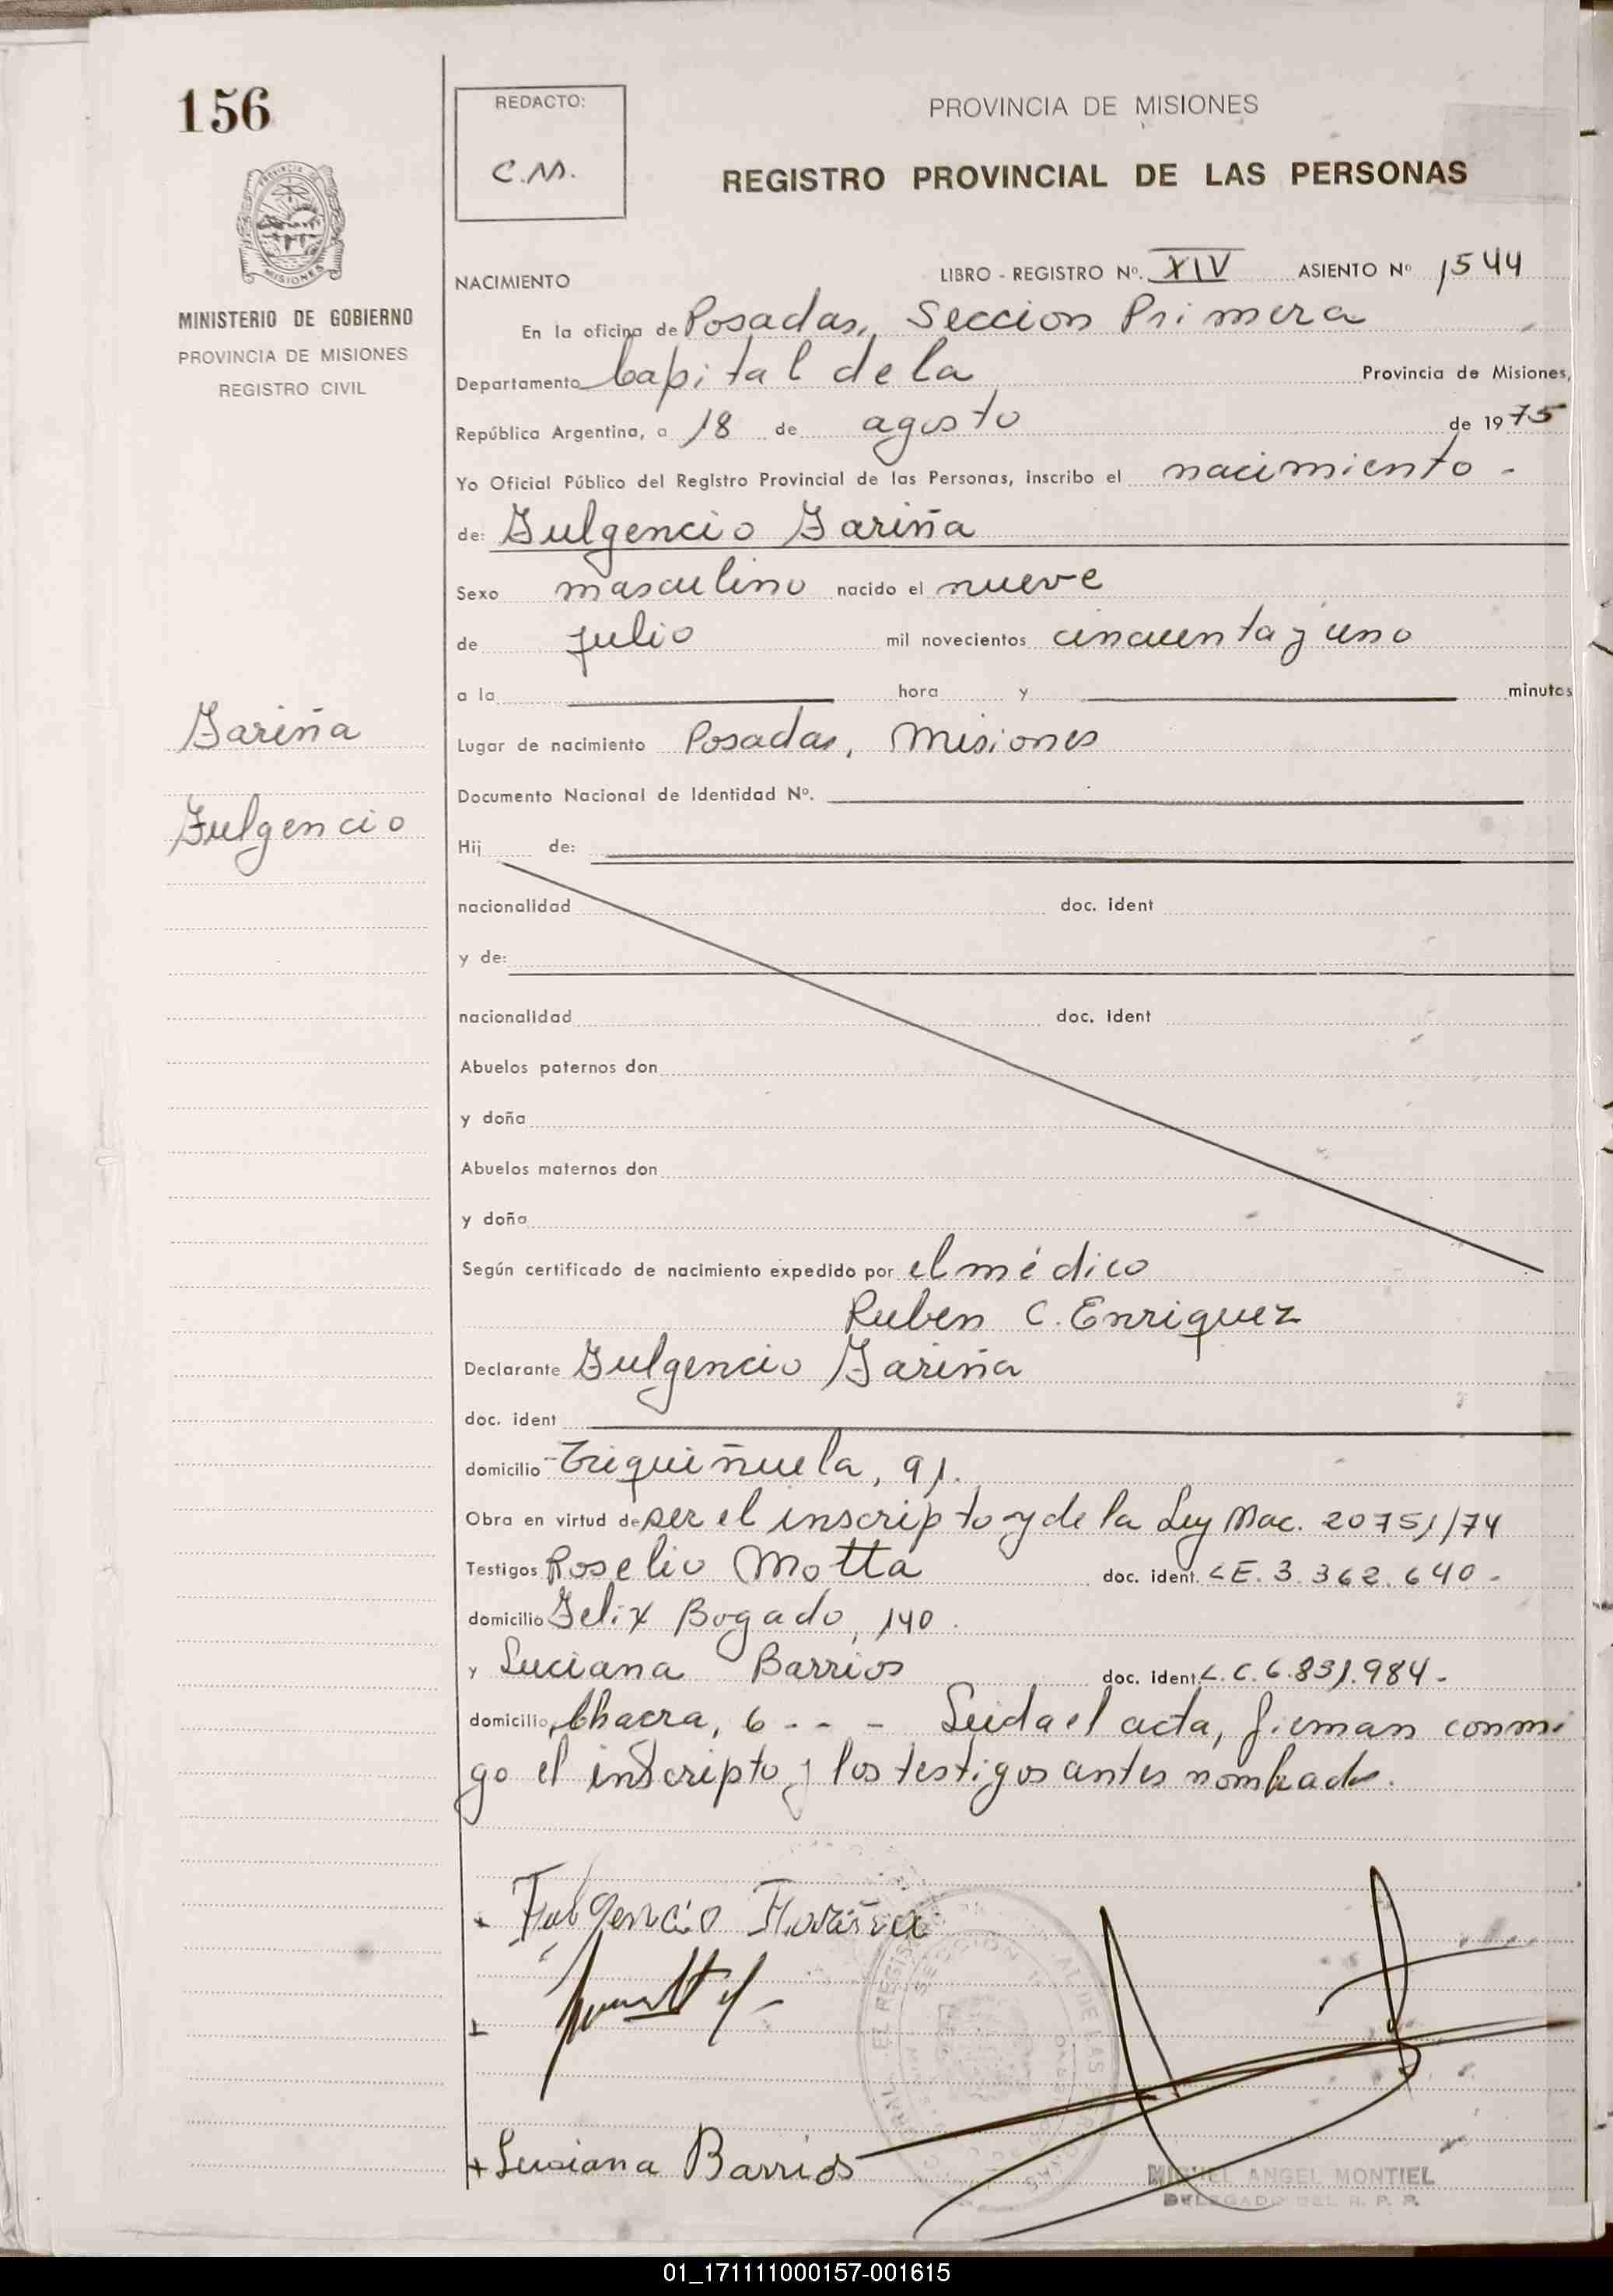 156
REDACTO:
C.M.
PROVINCIA DE MISIONES
REGISTRO PROVINCIAL DE LAS PERSONAS
PROVINCIA DE
MISIONES
MINISTERIO DE GOBIERNO
PROVINCIA DE MISIONES
REGISTRO CIVIL
NACIMIENTO LIBRO - REGISTRO Nº. XIV ASIENTO Nº 1544
En la oficina de Posadas, Seccion Primera
Departamento Capital de la Provincia de Misiones,
República Argentina, a 18 de agosto de 1975
Yo Oficial Público del Registro Provincial de las Personas, inscribo el nacimiento -
de: Fulgencio Fariña
Sexo masculino nacido el nueve
de julio mil novecientos cincuenta y uno
a la hora y minutos
Fariña
Lugar de nacimiento Posadas, Misiones
Documento Nacional de Identidad Nº.
Fulgencio
Hij de:
nacionalidad doc. ident
y de:
nacionalidad doc. ident
Abuelos paternos don
y doña
Abuelos maternos don
y doña
Según certificado de nacimiento expedido por el médico
Ruben C. Enriquez
Declarante Fulgencio Fariña
doc. ident
domicilio Triquiñuela, 91.
Obra en virtud de ser el inscripto y de la Ley Nac. 20751/74
Testigos Roselio Motta doc. ident. L.E. 3.362.640 -
domicilio Felix Bogado, 140.
y Luciana Barrios doc. ident. L.C. 6.831.984 -
domicilio, Chacra, 6 - - - Leida el acta, firman conmi
go el inscripto y los testigos antes nombrados.
Fulgencio Fariña
Lusiana Barrios
MIGUEL ANGEL MONTIEL
DELEGADO DEL R. P. P.
01_171111000157-001615